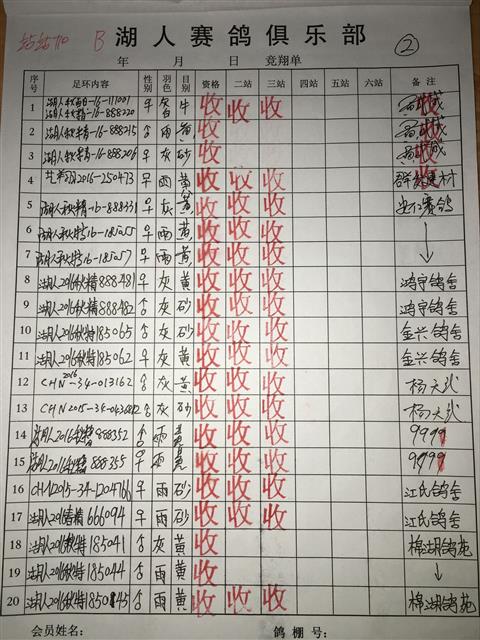 站站110 B 湖人赛鸽俱乐部 ②
年 月 日 竞翔单
序号 足环内容 性别 羽色 眼砂 资格 二站 三站 四站 五站 六站 备注
1 湖人秋 -16-111001 湖人秋精-16-888220 早 灰 牛 收 收 收
2 湖人秋精-16-888215 雨 黄 收
3 湖人秋精-16-888206 早 灰 砂 收
4 2016-250473 早 雨 黄 收 收 收 建材
5 湖人秋精-16-888331 早 灰 黄 收 收 收 赛鸽
6 湖人秋特-16-185055 早 雨 黄 收 收 收
7 湖人秋特-16-185057 早 雨 黄 收 收 收 ↓
8 湖人2016秋精888481 早 灰 黄 收 收 收 鸿宇鸽舍
9 湖人2016秋精888482 灰 砂 收 收 收 鸿宇鸽舍
10 湖人2016秋特185065 灰 砂 收 收 收 金兴鸽舍
11 湖人2016秋特185062 早 灰 黄 收 收 收 金兴鸽舍
12 CHN2016-34-013162 灰 黄 收 收 收 杨大兴
13 CHN2015-34- 灰 砂 收 收 收 杨大兴
14 湖人2016秋精888352 雨 黄 收 收 收 9999
15 湖人2016秋精888355 早 雨 黄 收 收 收 9999
16 CHN2015-34-1204766 早 雨 砂 收 收 收 江氏鸽舍
17 湖人2016 精666094 早 雨 砂 收 收 收 江氏鸽舍
18 湖人2016秋特185041 灰 黄 收 棉湖鸽苑
19 湖人2016秋特185044 雨 黄 收 ↓
20 湖人2016秋特185045 雨 黄 收 收 收 棉湖鸽苑
会员姓名: 鸽棚号: